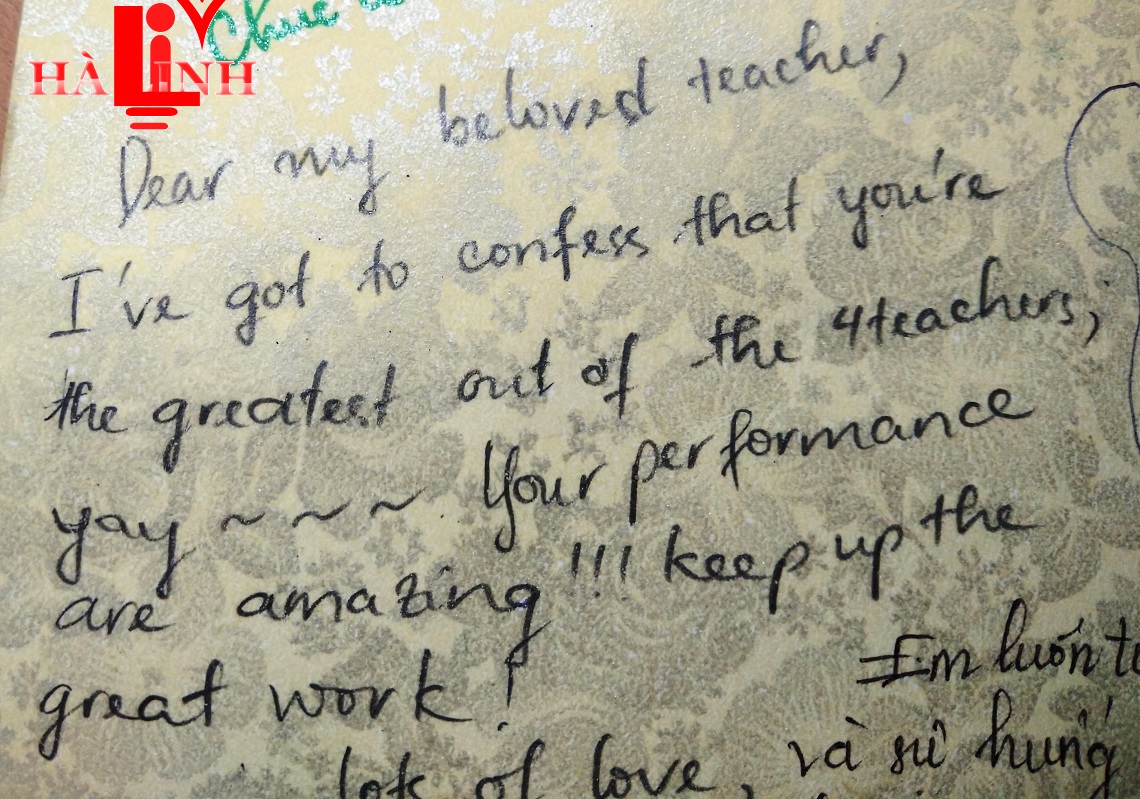 HÀ LINH
Chúc
Dear my beloved teacher,
I've got to confess that you're
the greatest out of the 4 teachers;
yay ~ ~ ~ Your performance
are amazing!!! keep up the
great work!
lots of love,
Em luôn
và sự hứng